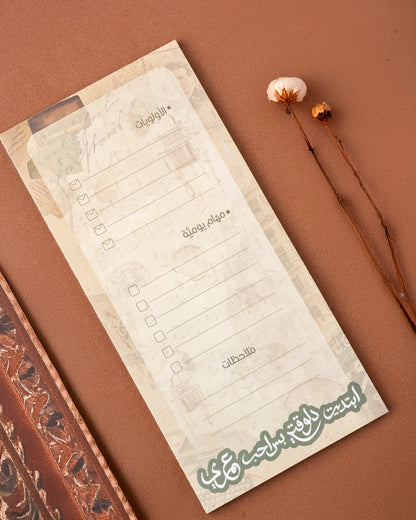 الأولويات
مهام يوميّة
ملاحظات
ابتديت دلوقتي بس احب عمري